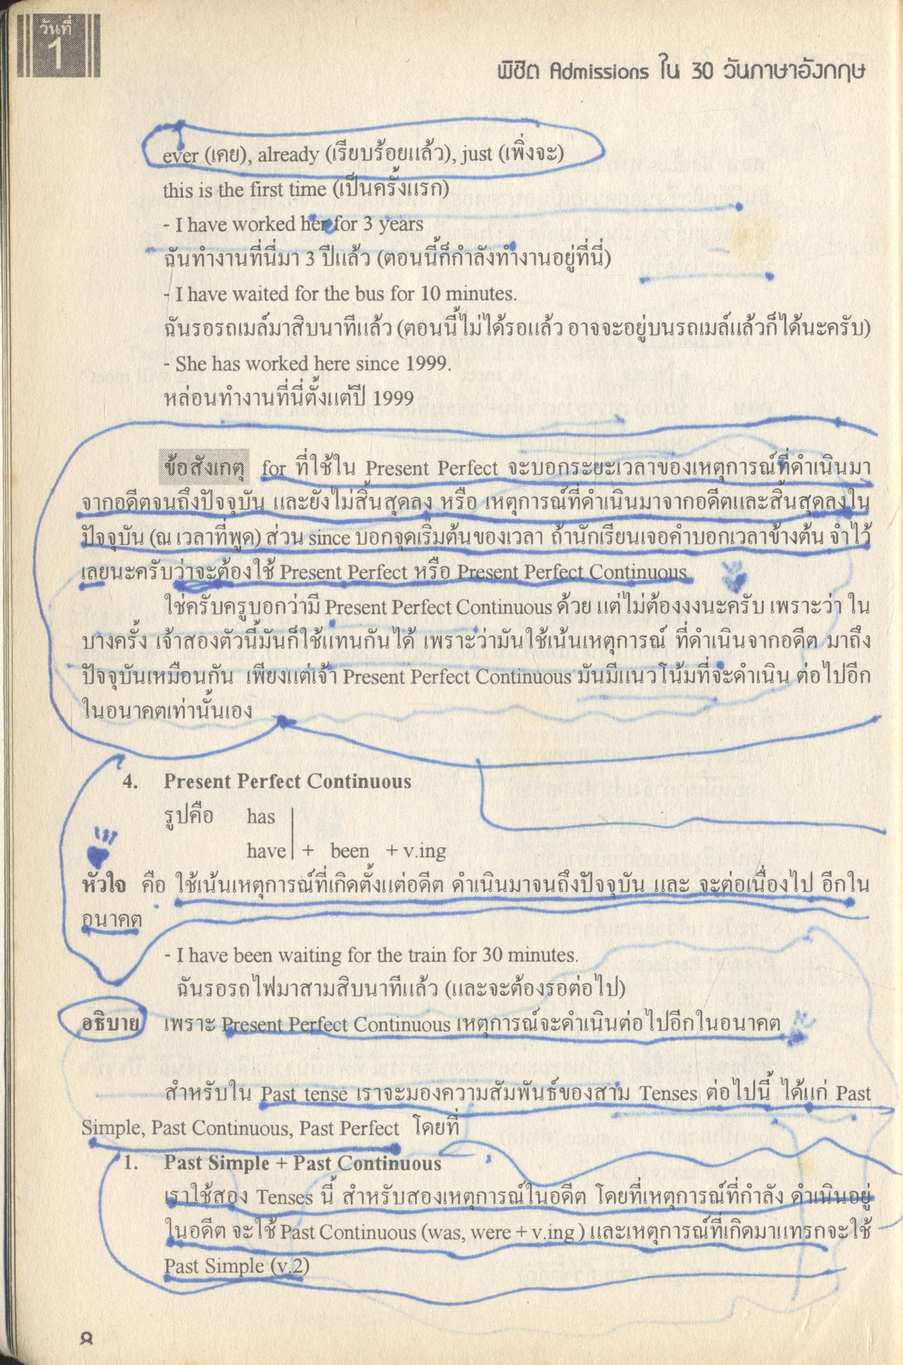 วันที่
1
พิชิต Admissions ใน 30 วันภาษาอังกฤษ
ever (เคย), already (เรียบร้อยแล้ว), just (เพิ่งจะ)
this is the first time (เป็นครั้งแรก)
- I have worked her for 3 years
ฉันทำงานที่นี่มา 3 ปีแล้ว (ตอนนี้ก็กำลังทำงานอยู่ที่นี่)
- I have waited for the bus for 10 minutes.
ฉันรอรถเมล์มาสิบนาทีแล้ว (ตอนนี้ไม่ได้รอแล้ว อาจจะอยู่บนรถเมล์แล้วก็ได้นะครับ)
- She has worked here since 1999.
หล่อนทำงานที่นี่ตั้งแต่ปี 1999
ข้อสังเกตุ for ที่ใช้ใน Present Perfect จะบอกระยะเวลาของเหตุการณ์ที่ดำเนินมา
จากอดีตจนถึงปัจจุบัน และยังไม่สิ้นสุดลง หรือ เหตุการณ์ที่ดำเนินมาจากอดีตและสิ้นสุดลงใน
ปัจจุบัน (ณ เวลาที่พูด) ส่วน since บอกจุดเริ่มต้นของเวลา ถ้านักเรียนเจอคำบอกเวลาข้างต้น จำไว้
เลยนะครับว่าจะต้องใช้ Present Perfect หรือ Present Perfect Continuous
ใช่ครับครูบอกว่ามี Present Perfect Continuous ด้วย แต่ไม่ต้องงงนะครับ เพราะว่า ใน
บางครั้ง เจ้าสองตัวนี้มันก็ใช้แทนกันได้ เพราะว่ามันใช้เน้นเหตุการณ์ ที่ดำเนินจากอดีต มาถึง
ปัจจุบันเหมือนกัน เพียงแต่เจ้า Present Perfect Continuous มันมีแนวโน้มที่จะดำเนิน ต่อไปอีก
ในอนาคตเท่านั้นเอง
4. Present Perfect Continuous
รูปคือ has
have + been + v.ing
หัวใจ คือ ใช้เน้นเหตุการณ์ที่เกิดตั้งแต่อดีต ดำเนินมาจนถึงปัจจุบัน และ จะต่อเนื่องไป อีกใน
อนาคต
- I have been waiting for the train for 30 minutes.
ฉันรอรถไฟมาสามสิบนาทีแล้ว (และจะต้องรอต่อไป)
อธิบาย เพราะ Present Perfect Continuous เหตุการณ์จะดำเนินต่อไปอีกในอนาคต
สำหรับใน Past tense เราจะมองความสัมพันธ์ของสาม Tenses ต่อไปนี้ ได้แก่ Past
Simple, Past Continuous, Past Perfect โดยที่
1. Past Simple + Past Continuous
เราใช้สอง Tenses นี้ สำหรับสองเหตุการณ์ในอดีต โดยที่เหตุการณ์ที่กำลัง ดำเนินอยู่
ในอดีต จะใช้ Past Continuous (was, were + v.ing ) และเหตุการณ์ที่เกิดมาแทรกจะใช้
Past Simple (v.2)
8